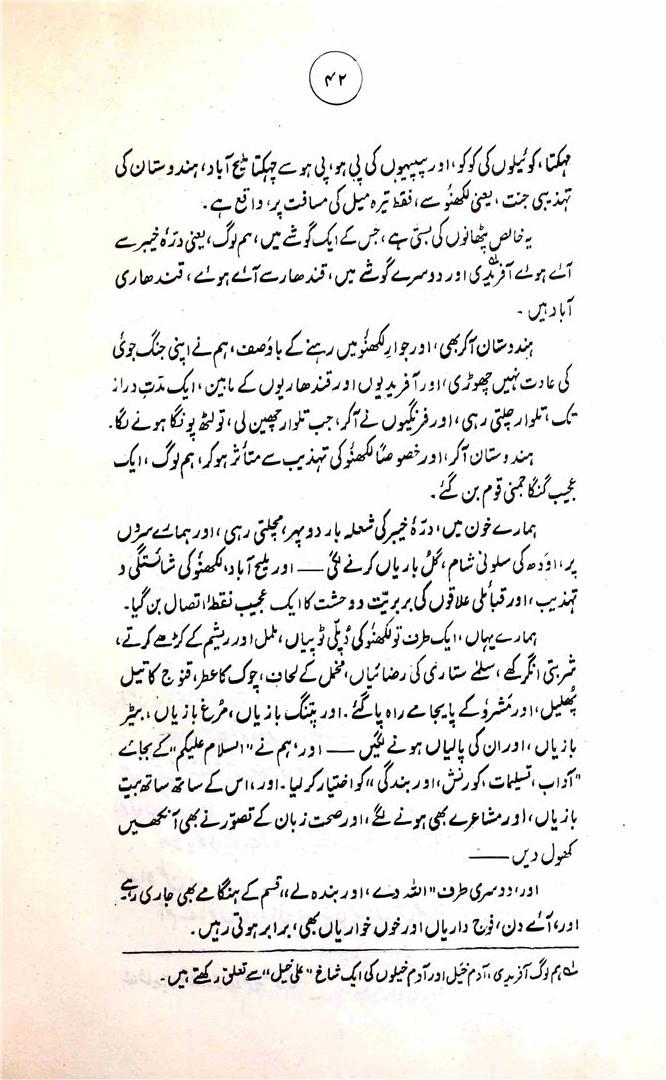 ۴۲
مہکتا، کوئیلوں کی کوکو، اور پپیہوں کی پی ہو، پی ہو سے چہکتا ملیح آباد، ہندوستان کی
تہذیبی جنت، یعنی لکھنؤ سے، فقط تیرہ میل کی مسافت پر، واقع ہے۔
یہ خالص پٹھانوں کی بستی ہے، جس کے ایک گوشے میں، ہم لوگ، یعنی درّہ خیبر سے
آئے ہوئے آفریدی اور دوسرے گوشے میں، قندھار سے آئے ہوئے، قندھاری
آباد ہیں۔
ہندوستان آکر بھی، اور جوارِ لکھنؤ میں رہنے کے باوصف، ہم نے اپنی جنگ جوئی
کی عادت نہیں چھوڑی، اور آفریدیوں اور قندھاریوں کے مابین، ایک مدتِ دراز
تک، تلوار چلتی رہی، اور فرنگیوں نے آکر، جب تلوار چھین لی، تو لٹھ پونگا ہونے لگا۔
ہندوستان آکر، اور خصوصاً لکھنؤ کی تہذیب سے متأثر ہوکر، ہم لوگ، ایک
عجیب گنگا جمنی قوم بن گئے۔
ہمارے خون میں، درّہ خیبر کی شعلہ بار دوپہر، مچلتی رہی، اور ہمارے سروں
پر، اودھ کی سلونی شام، گُل باریاں کرنے لگی — اور ملیح آباد، لکھنؤ کی شائستگی و
تہذیب، اور قبائلی علاقوں کی بربریت و وحشت کا ایک عجیب نقطۂ اتصال بن گیا۔
ہمارے یہاں، ایک طرف تو لکھنؤ کی دُپلّی ٹوپیاں، ململ اور ریشم کے کڑھے کرتے،
شربتی انگرکھے، سلمے ستاری کی رضائیاں، مخمل کے لحاف، چوک کا عطر، قنوج کا تیل
پھلیل، اور مشروع کے پایجامے راہ پا گئے۔ اور پتنگ بازیاں، مرغ بازیاں، بٹیر
بازیاں، اور ان کی پالیاں ہونے لگیں — اور، ہم نے "السلام علیکم" کے بجائے
"آداب، تسلیمات، کورنش، اور بندگی" کو اختیار کرلیا۔ اور، اس کے ساتھ ساتھ بیت
بازیاں، اور مشاعرے بھی ہونے لگے، اور صحت زبان کے تصوّر نے بھی آنکھیں
کھول دیں —
اور، دوسری طرف "اللہ دے، اور بندہ لے" قسم کے ہنگامے بھی جاری رہے
اور، آئے دن، فوج داریاں اور خوں خواریاں بھی، برابر ہوتی رہیں۔
لہ ہم لوگ آفریدی، آدم خیل اور آدم خیلوں کی ایک شاخ "علی خیل" سے تعلق رکھتے ہیں۔